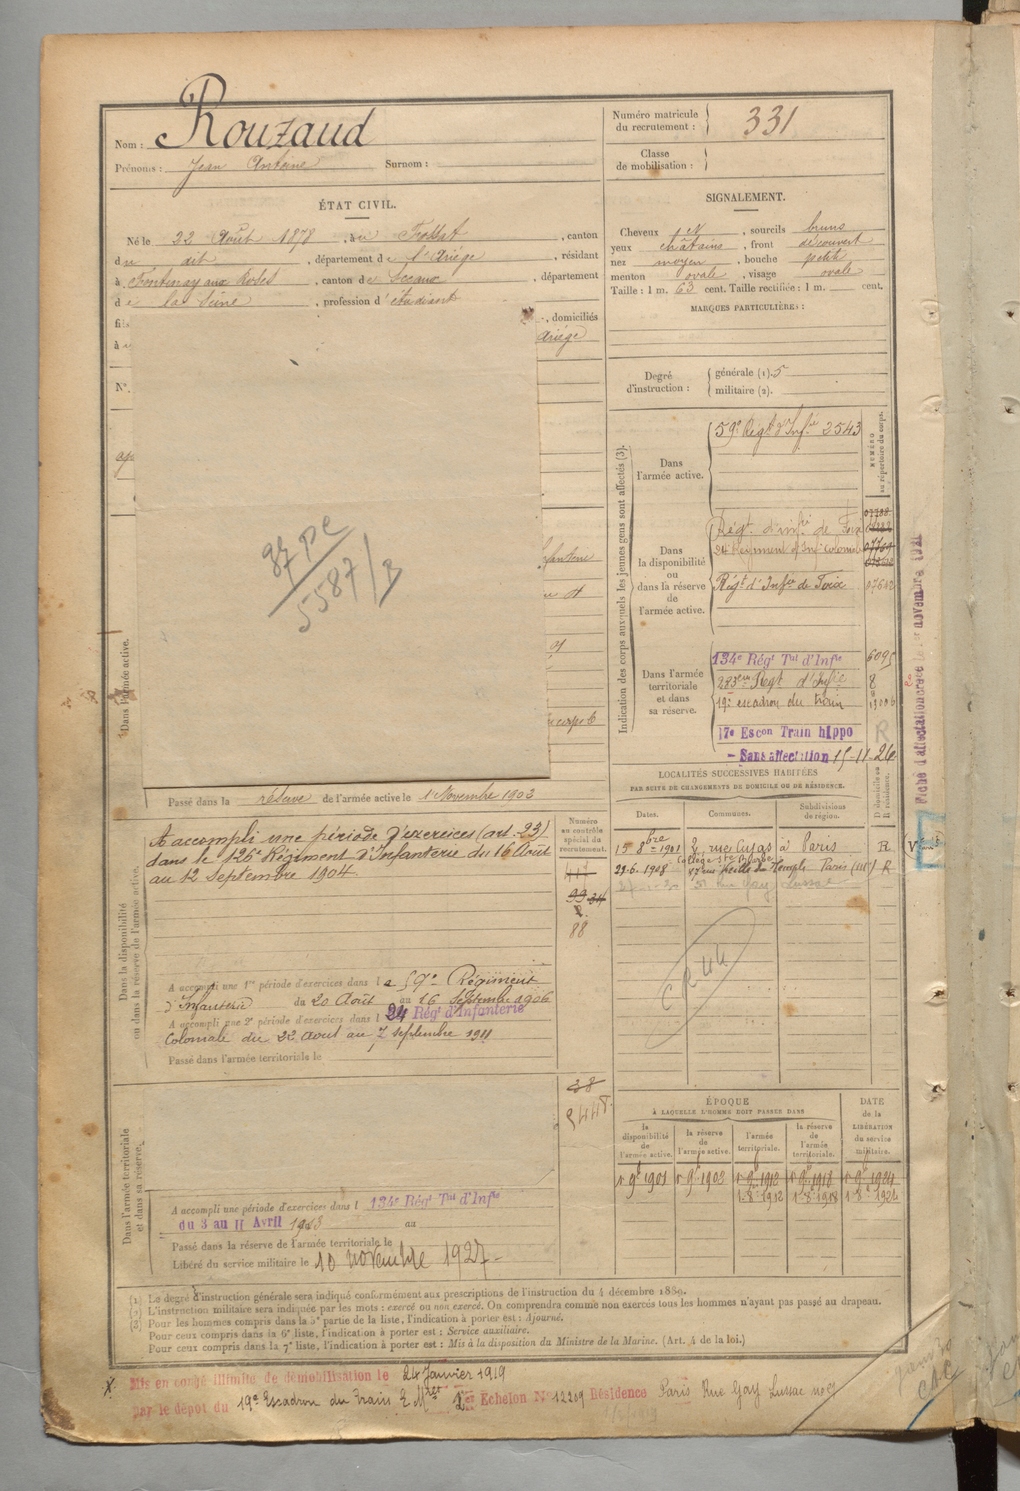 Nom : Rouzaud
Prénoms : Jean Antoine Surnom :
Numéro matricule
du recrutement : 331
Classe
de mobilisation :
ÉTAT CIVIL.
Né le 22 Août 1878, à Fossat, canton
du dit, département de l'Ariège, résidant
à Fontenay aux Roses, canton de Sceaux, département
de la Seine, profession d'étudiant
fils , domiciliés
à Ariège
N°.
SIGNALEMENT.
Cheveux et, sourcils bruns
yeux châtains, front découvert
nez moyen, bouche petite
menton ovale, visage ovale
Taille : 1 m. 63 cent. Taille rectifiée : 1 m. cent.
MARQUES PARTICULIÈRES :
Degré
d'instruction :
générale (1). 5
militaire (2).
87 PC
5587/3
Indication des corps auxquels les jeunes gens sont affectés (3).
NUMÉRO
au répertoire du corps.
Dans
l'armée active.
59e Régt d'Infie 2543
Dans
la disponibilité
ou
dans la réserve
de
l'armée active.
Régt. d'infie de Foix
24 Régiment d'Infie Coloniale
Régt d'Infie de Foix 07642
Dans l'armée
territoriale
et dans
sa réserve.
134e Régt Tal d'Infie 6095
283eme Régt d'Infie 8
19e escadron du train
17e Escon Train hippo
- Sans affectation 15-11-26
R
Dans l'armée active.
Infanterie
corps le
Passé dans la réserve de l'armée active le 1 Novembre 1902
LOCALITÉS SUCCESSIVES HABITÉES
PAR SUITE DE CHANGEMENTS DE DOMICILE OU DE RÉSIDENCE.
Dates. Communes. Subdivisions
de région.
D domicile ou
R résidence.
15 8bre 1901 2, rue Cujas à Paris R
23-6-1908 Collège Ste Barbe
47 rue Vieille du Temple Paris (IIIe) R
51 rue Gay Lussac
Numéro
au contrôle
spécial du
recrutement.
88
38
Dans la disponibilité
ou dans la réserve de l'armée active.
A accompli une période d'exercices (art. 23)
dans le 126e Régiment d'Infanterie du 16 Août
au 12 Septembre 1904.
A accompli une 1re période d'exercices dans le 59e Régiment
d'Infanterie du 20 Août au 16 Septembre 1906
A accompli une 2e période d'exercices dans l 24 Régt d'Infanterie
Coloniale du 22 Août au 7 septembre 1911
Passé dans l'armée territoriale le
Dans l'armée territoriale
et dans sa réserve.
A accompli une période d'exercices dans l 134e Régt Tal d'Infie
du 3 au 11 Avril 1913 au
Passé dans la réserve de l'armée territoriale le
Libéré du service militaire le 10 novembre 1927-
ÉPOQUE
À LAQUELLE L'HOMME DOIT PASSER DANS
la
disponibilité
de
l'armée active.
la réserve
de
l'armée active.
l'armée
territoriale.
la réserve
de
l'armée
territoriale.
DATE
de la
LIBÉRATION
du service
militaire.
1r 9e 1901 1r 9e 1902 1r 9e 1912 1r 9e 1918 1r 9e 1924
1-8e 1912 1-8e 1918 1-8e 1924
(1) Le degré d'instruction générale sera indiqué conformément aux prescriptions de l'instruction du 4 décembre 1889.
(2) L'instruction militaire sera indiquée par les mots : exercé ou non exercé. On comprendra comme non exercés tous les hommes n'ayant pas passé au drapeau.
(3) Pour les hommes compris dans la 5e partie de la liste, l'indication à porter est : Ajourné.
Pour ceux compris dans la 6e liste, l'indication à porter est : Service auxiliaire.
Pour ceux compris dans la 7e liste, l'indication à porter est : Mis à la disposition du Ministre de la Marine. (Art. 4 de la loi.)
Mis en congé illimité de démobilisation le 24 Janvier 1919
par le dépôt du 19e Escadron du Train Echelon N° 12209 Résidence Paris Rue Gay Lussac